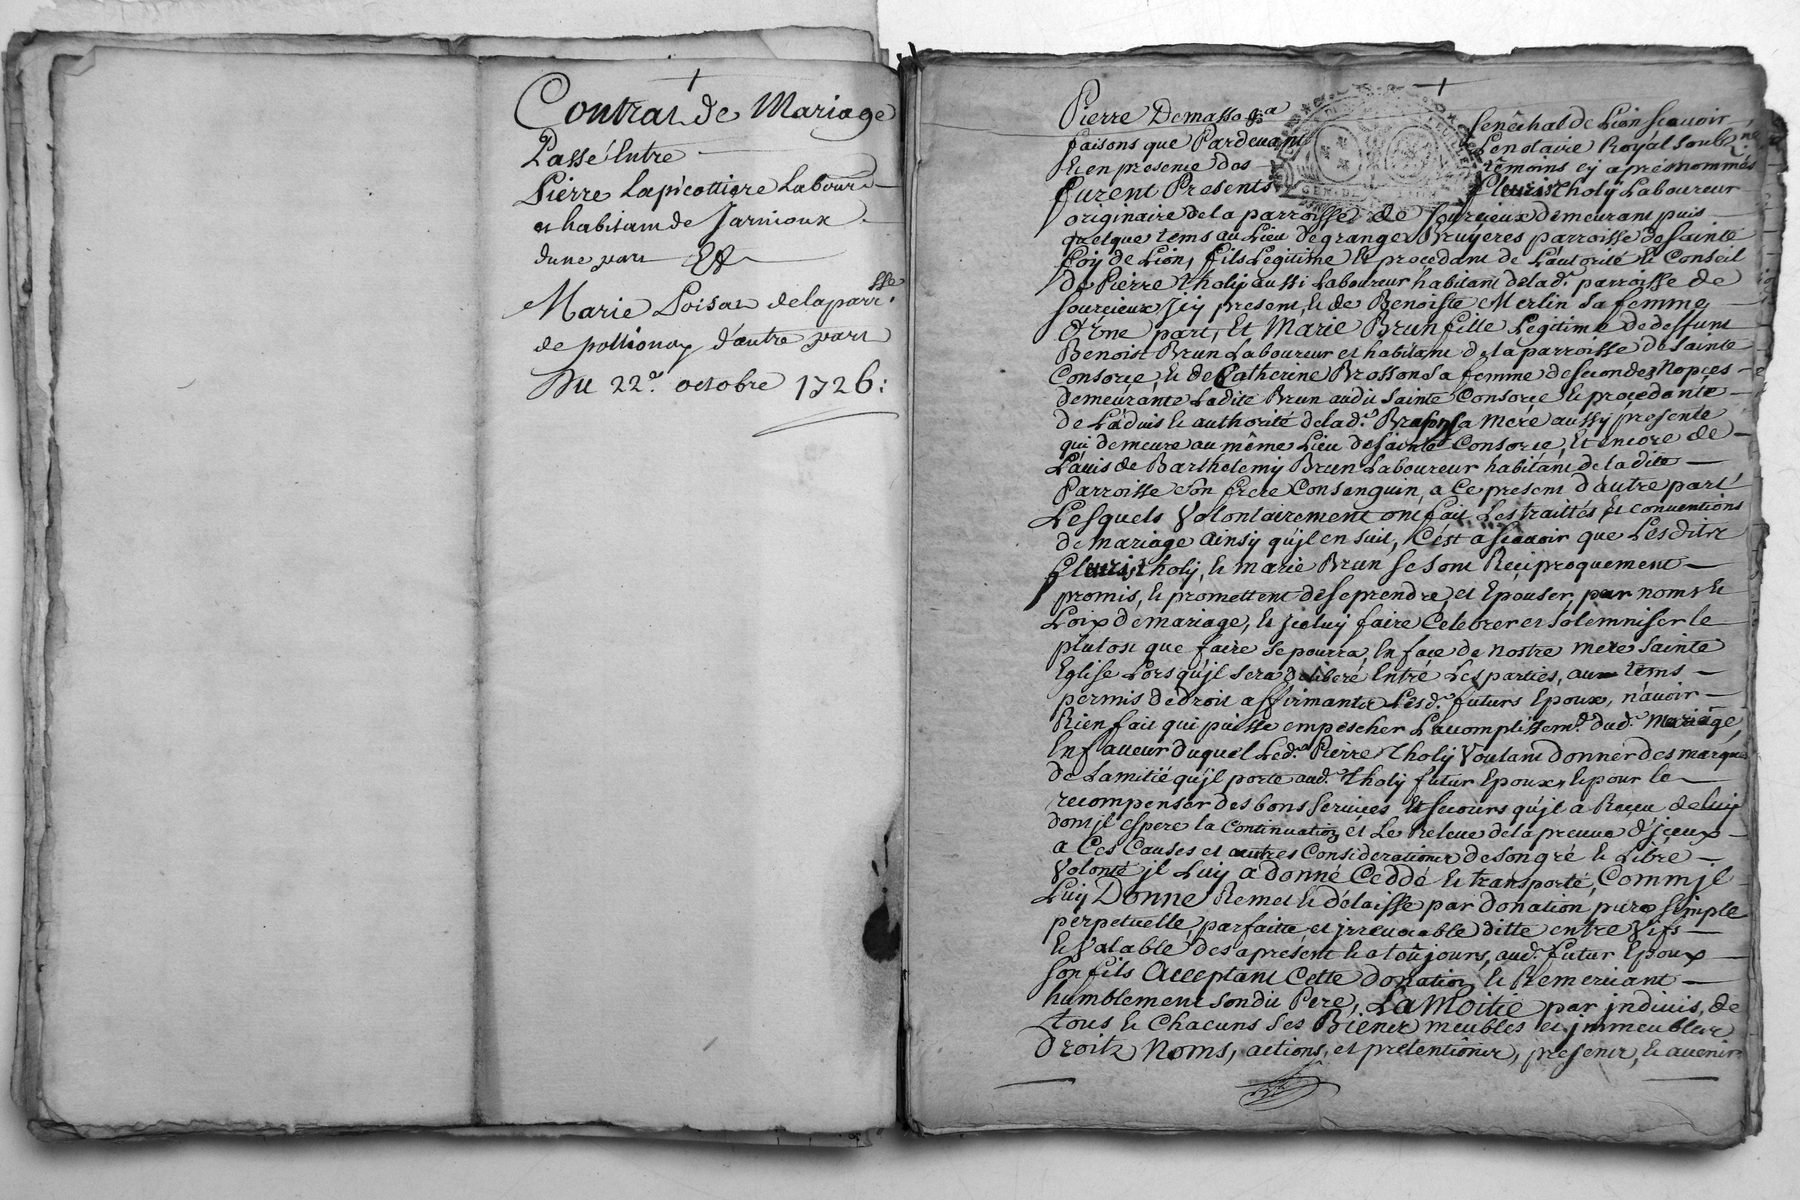 Contrat de Mariage
Passé Entre
Pierre Lapicottiere Labour.
et habitant de Jarnioux
dune part Et
Marie Loisat de la parr.sse
de pollionay d'autre part
Du 22.e octobre 1726:
Pierre Demasso Senêchal de Lion scavoir
faisons que Pardevant Le notaire Royal soub.né
Et en presence des têmoins cy aprés nommés
furent Presents fleurist tholy Laboureur
originaire de la parroisse de sourcieux demeurant puis
quelque tems au Lieu de grange Bruyeres parroisse de sainte
foy de Lion, fils Legitime Et procedant de L'autorité et Conseil
De Pierre tholy aussi Laboureur habitant de lad. parroisse de
sourcieux Jcy present, et de Benoiste Merlin sa femme
D'vne part, Et Marie Brun fille Legitime de deffunt
Benoist Brun Laboureur et habitant de la parroisse de sainte
Consorce, et de Catherine Brosson sa femme de secondes Nopces
demeurante Ladite Brun audit Sainte Consorce Et procedante
de L'advis et authorité de lad. sa Mere aussy presente
qui demeure au même Lieu de Sainte Consorce, Et encore de
L'avis de Barthelemy Brun Laboureur habitant de la dite
Parroisse son frere Consanguin, a Ce present d'autre part
Lesquels Volontairement ont fait Les traittés Et conventions
de mariage Ainsy qu'jl en suit, C'est a scavoir que Lesdits
fleurist tholy, et Marie Brun se sont Reciproquement
promis, et promettent de se prendre, et Epouser, par nom et
Loix de mariage, et jceluy faire Celebrer et solemniser le
plutost que faire se pourra, En face de Nostre mere sainte
Eglise Lorsqu'jl sera deliberé Entre Les parties, aux tems
permis de droit affirmants Lesd. futurs Epoux, n'avoir
Rien fait qui puisse empescher L'accomplissem.t dud. Mariage,
En faveur duquel Led. Pierre tholy Voulant donner des marques
de L'amitié qu'jl porte aud. tholy futur Epoux, Et pour le
recompenser des bons services Et secours qu'jl a Receu de luy
dont jl espere la Continuation et Le Releve de la preuve d'jceux
a Ces Causes et autres Considerations de son gré et Libre
Volonté jl Luy a donné Ceddé et transporté, Comm'jl
Luy Donne Remet et délaisse par donation pure simple
perpetuelle parfaitte, et jrrevocable ditte entre Vifs
et Valable des aprésent et a toûjours, aud. futur Epoux
son fils Acceptant Cette donation et Remerciant
humblement sondit Pere, La Moitié par jndivis, de
tous et Chacuns ses Biens meubles et jmmeubles
Droits Noms, actions, et pretentions, presents, et avenir